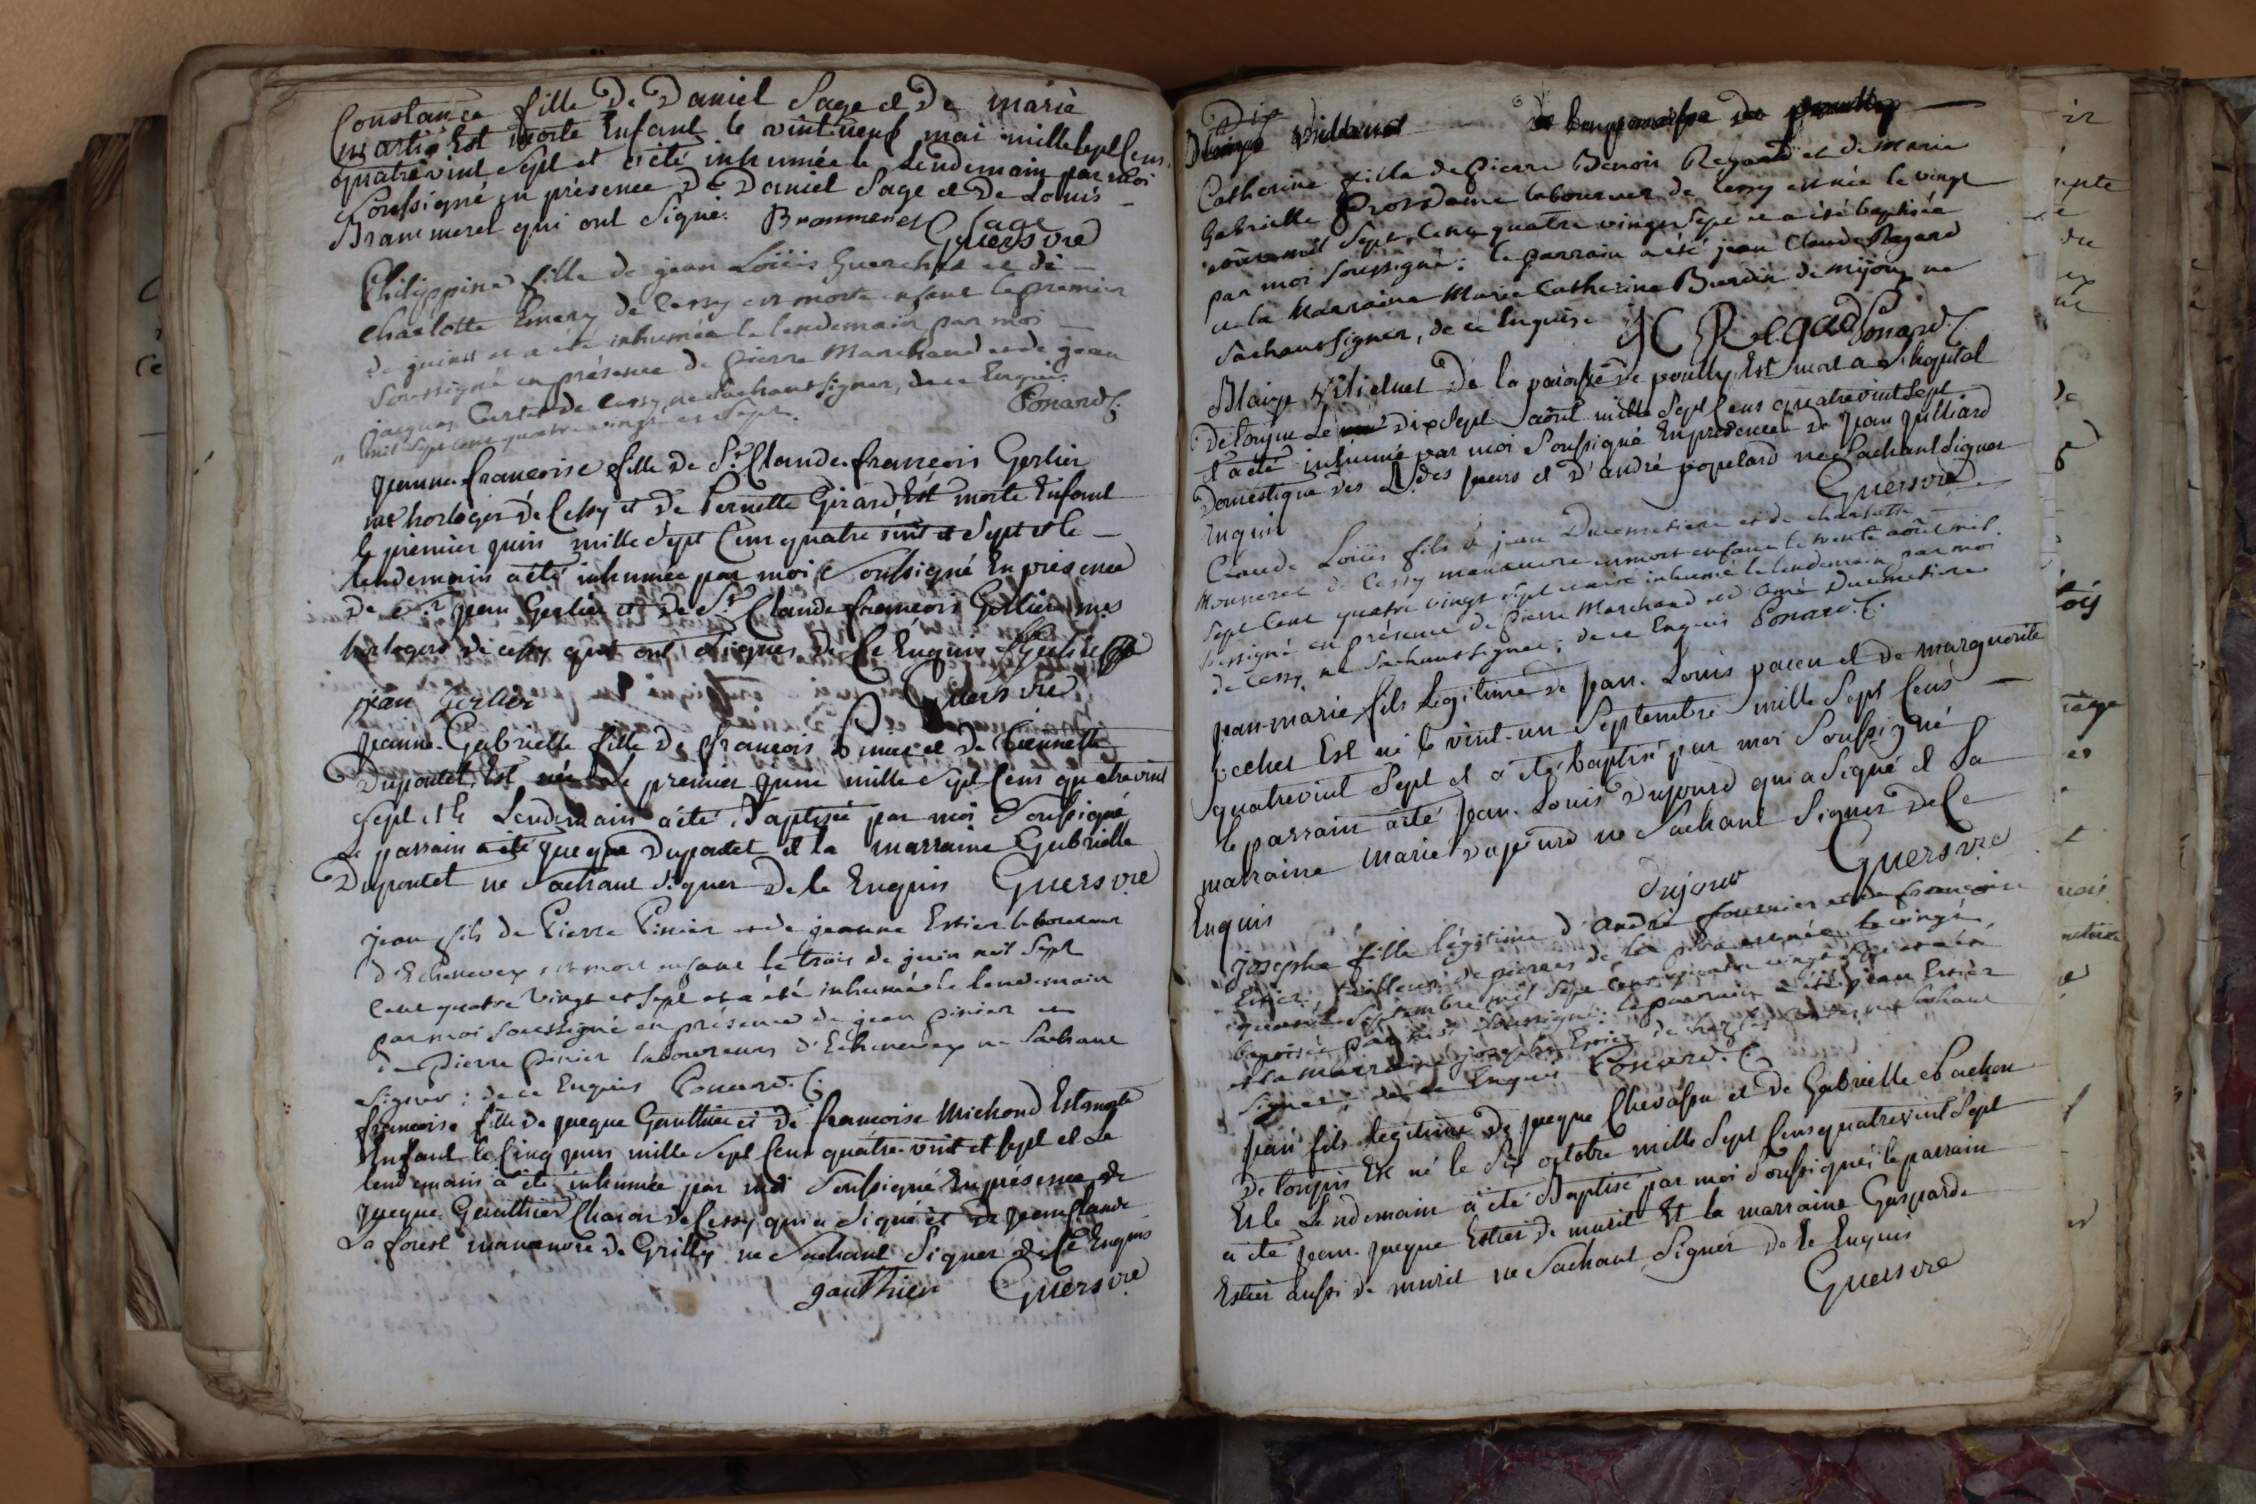 Constance fille De Daniel Sage et De marie
martin Est morte Enfant le vint neuf mai mille sept Cens
quatrevint Sept et a été inhumée le Lendemain par moi
Soussigné en présence De Daniel Sage et De Louis
Brammerel qui ont Signé. Brammerel Sage
Guersvre
Philippine fille de jean Loüis Guerchet et de
charlotte Emery de Cessy est morte enfant le premier
de juin et a été inhumée le lendemain par moi
Soussigné en présence de pierre Marchand et de jean
jacques de Cessy, ne Sachant Signer, de ce Enquis.
mil Sept cent quatre vingt et Sept. Ponard C.
jeanne françoise fille de Sr. Claude françois Gerlier
me horloger de Cessy et De Pernette Girard Est morte Enfant
le premier juin mille Sept Cens quatre vint et Sept et le
lendemain a été inhumée par moi Soussigné En présence
de Sr jean Gerlier et de Sr Claude françois Gerlier mes
horlogers de cessy qui ont Signés De Ce Enquis Gerlier
jean Gerlier Guersvre
jeanne Gabrielle fille De françois et De Pernette
Dupontet Est née Le premier juin mille Sept Cens quatrevint
Sept et le Lendemain a été Baptisée par moi Soussigné
Le parrain a été jacque Dupontet et la marraine Gabrielle
Dupontet ne Sachant Signer De Ce Enquis Guersvre
jean fils de Pierre Pinier et de jeanne Estier laboureur
d'Echenevex est mort enfant le trois de juin mil Sept
Cent quatre Vingt et Sept et a été inhumé le lendemain
par moi Soussigné en présence de jean pinier et
de Pierre Pinier laboureurs d'Echenevex ne Sachant
Signer ; de ce Enquis Ponard. C.
françoise fille De jacque Gauthier et De françoise Michond Est morte
Enfant le Cinq juin mille Sept Cens quatre-vint et Sept et Le
lendemain a été inhumée par moi Soussigné En présence de
jacque Gauthier Charon de Cessy qui a Signé et De jean Claude
La forest manœuvre de Grilly ne Sachant Signer de Ce Enquis
gauthier Guersvre
Catherine fille de pierre Benoit Regard et de Marie
Gabrielle Grosdame laboureur de Cessy est née le vingt
août mil Sept Cent quatre vingt Sept et a été baptisée
par moi Soussigné : le parrain a été jean Claude Regard
et la Marraine Marie Catherine Burdin de mijoux ne
Sachant Signer, de ce Enquis. J C Regad Ponard C.
Blaise De la paroisse De pouilly Est mort a L'hopital
De tougin Le Dix Sept août mille Sept Cens quatrevint Sept
Et a été inhumé par moi Soussigné En présence De jean julliard
Domestique Des Sœurs et D'andré popelard ne Sachant Signer
Enquis Guersvre
Claude Loüis fils de jean Ducimetiere et de charlotte
Monneret de Cessy manœuvre est mort enfant le trente août mil
Sept Cent quatre vingt Sept et a été inhumé le lendemain par moi
Soussigné en présence de pierre Marchand et d'Amé Ducimetiere
de Cessy, ne Sachant Signer ; de ce Enquis Ponard. C.
jean-marie fils Légitime De jean Louis et De marguerite
pochet Est né le vint-un Septembre mille Sept Cens
quatrevint Sept et a été baptisé par moi Soussigné
le parrain a été jean Louis Dujourd qui a Signé et La
marraine Marie Dujourd ne Sachant Signer De Ce
Enquis Dujour Guersvre
josephe fille légitime d'andré fournier et de françoise
Estier, tailleur de pierres est née le vingt
Septembre mil Sept Cent quatre vingt Sept et a été
baptisée par moi Soussigné : le parrain a été jean Estier
et la marraine josephe Estier ne Sachant
Signer ; de ce Enquis Ponard. C.
jean fils légitime De jacque Chevassu et De Gabrielle
De tougin Est né le Six octobre mille Sept Cens quatrevint Sept
Et le Lendemain a été Baptisé par moi Soussigné, le parrain
a été jean-jacque Estier de Et la marraine Gasparde
Estier aussi de ne Sachant Signer De Ce Enquis
Guersvre